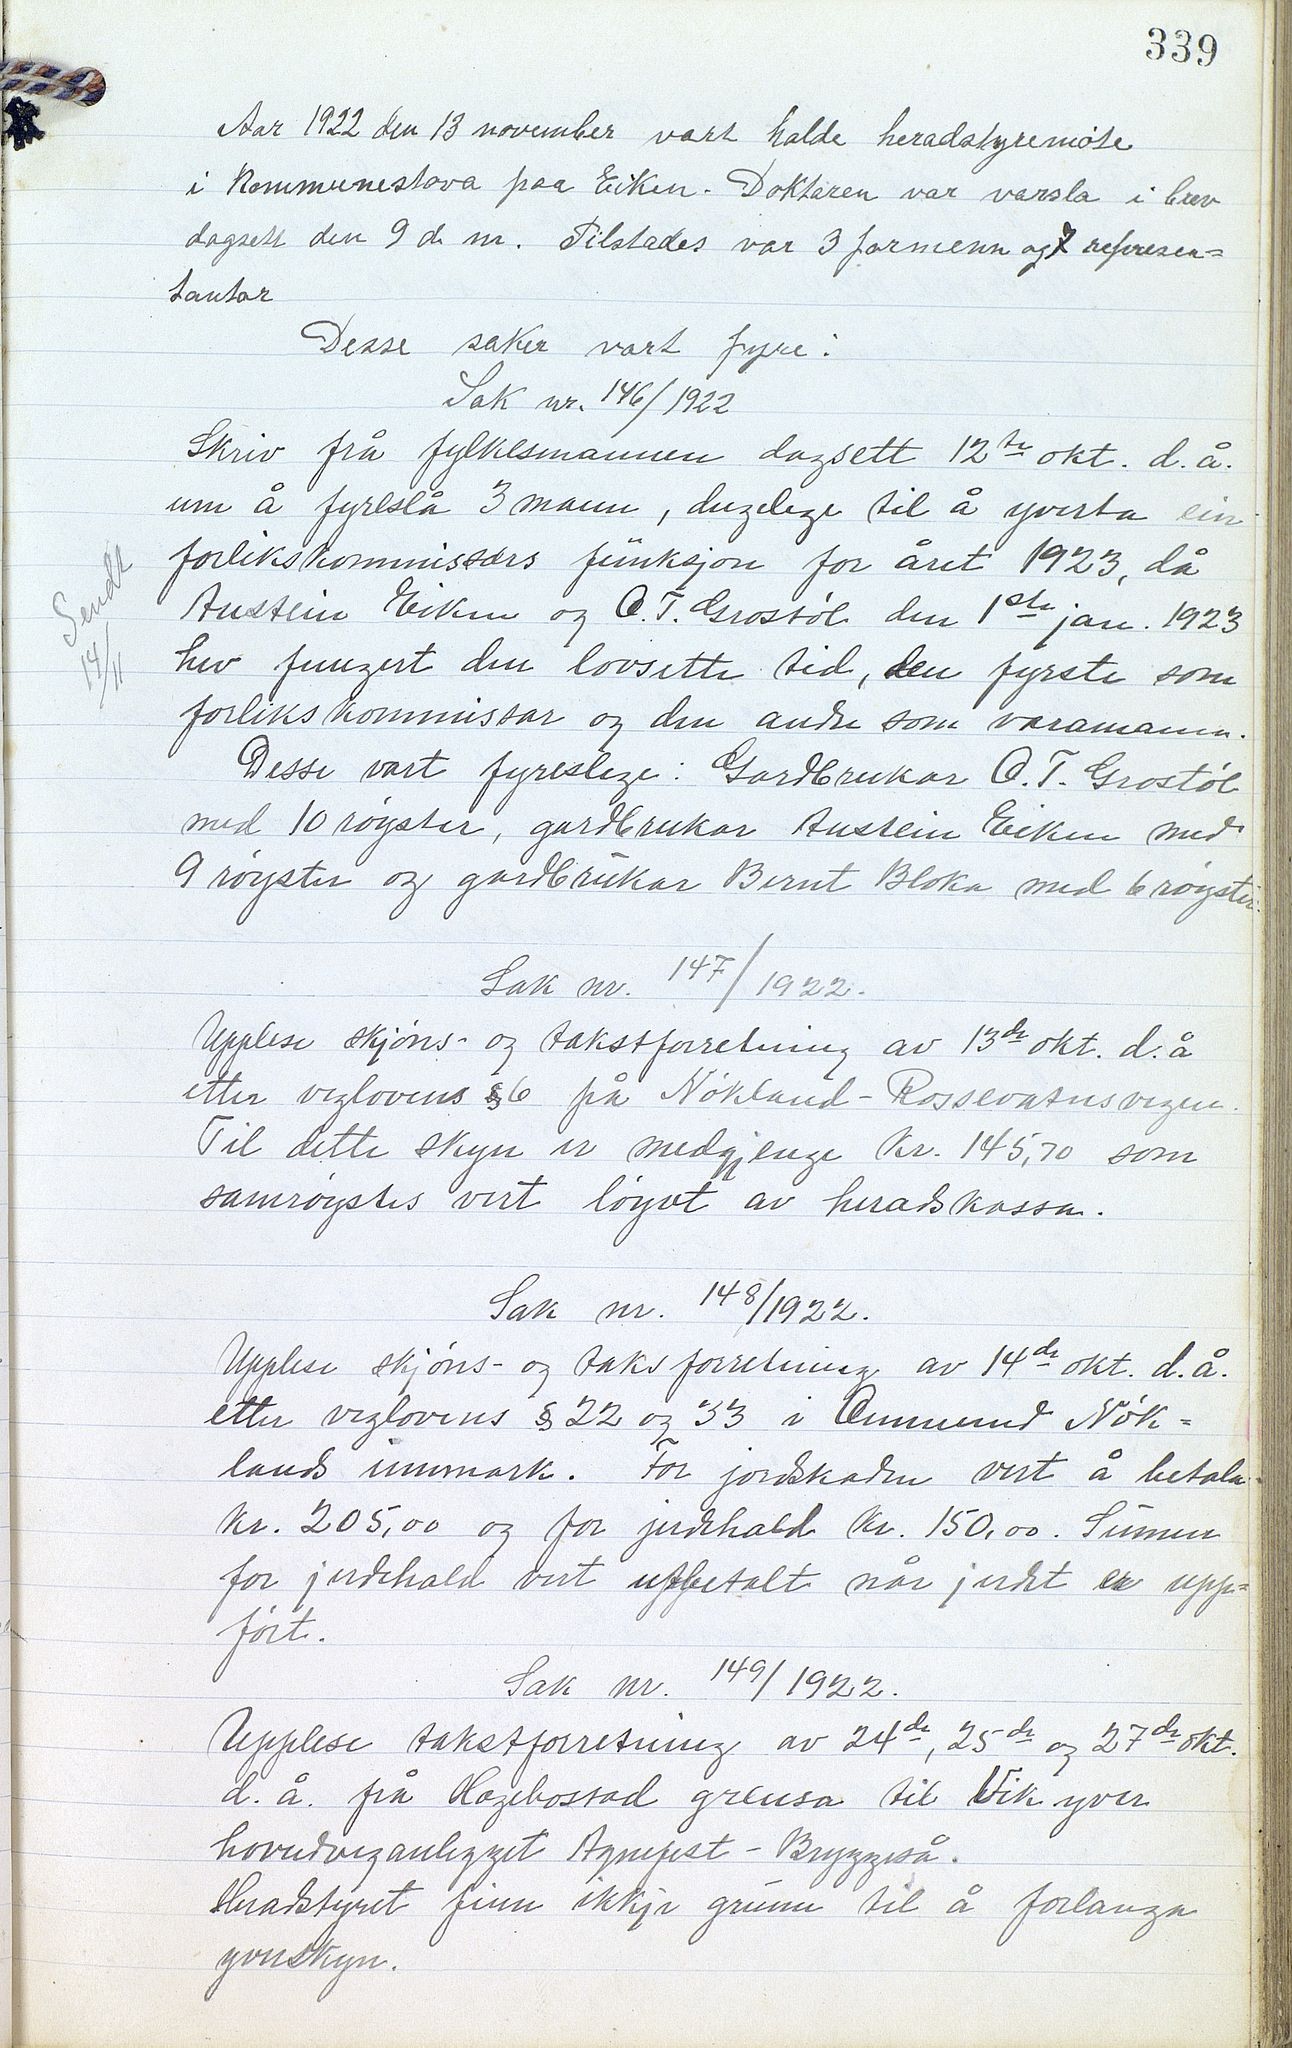 339
Aar 1922 den 13 november vart halde heradstyremöte
i Kommunestova paa Eiken. Doktaren var varsla i brev
dagsett den 9 d. m. Tilstades var 3 formenn og 7 represen=
tantar
Desse saker vart fyre:
Sak nr. 146/1922
Skriv frå fylkesmannen dagsett 12te okt. d.å.
um å fyreslå 3 mann, dugelege til å yverta ein
forlikskommissærs funksjon for året 1923, då
Austein Eiken og O.T. Grostöl den 1ste jan. 1923
hev fungert den lovsette tid, den fyrste som
forlikskommissar og den andre som varamann.
Sendt
14/11
Desse vart fyreslege: Gardbrukar O.T. Grostöl
med 10 röyster, gardbrukar Austein Eiken med
9 röyster og gardbrukar Bernt Bloka med 6 röyster.
Sak nr. 147/1922.
Upplese skjöns- og takstforretning av 13de okt. d.å
etter veglovens § 6 på Nökland-Rossevatnsvegen.
Til dette skyn er medgjenge kr. 145,70 som
samröystes vert löyvt av heradskassa.
Sak nr. 148/1922.
Upplese skjöns- og taksforretning av 14de okt. d.å.
etter veglovens § 22 og 33 i Ommund Nök=
lands innmark. For jordskaden vert å betala
kr. 205,00 og for jerdehald kr. 150,00. Sumen
for jerdehald vert utbetalt når jerdet er upp=
fört.
Sak nr. 149/1922.
Upplese takstforretning av 24de, 25de og 27de okt.
d. å. frå Hægebostad grensa til Vik yver
hovudveganlegget Agnefest - Bryggeså.
Heradstyret finn ikkje grunn til å forlanga
yverskyn.